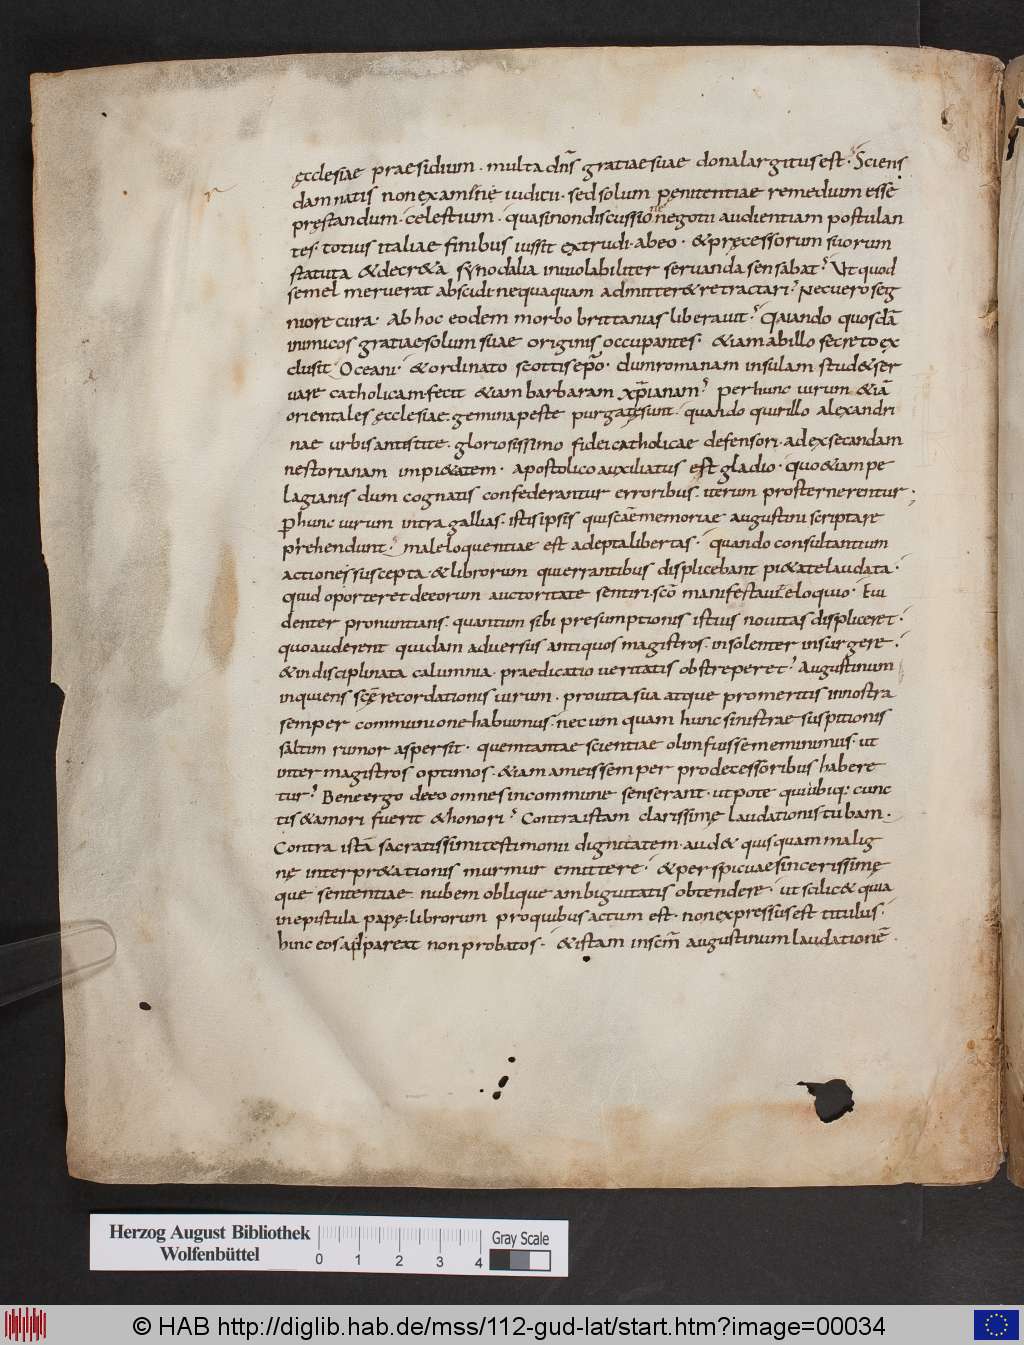 ęcclesiae praesidium · multa dn̄s gratiae suae dona largitus est · Sciens
damnatis non examinę iuditii · sed solum pęnitentiae remedium esse
pręstandum · celestium · quasi non discussione negotii audientiam postulan
tes · totius italiae finibus iussit extrudi · abeo · & pręcessorum suorum
statuta & decr&a synodalia inuiolabiliter seruanda sensabat · Ut quod
semel meruerat abscidi nequaquam admitter& retractari · Nec uero seg
niore cura · Ab hoc eodem morbo brittanias liberauit · Quando quosdā
inimicos gratiae solum suae originis occupantes · &iam ab illo secreto ex
clusit Oceani · & ordinato scottis ep̄o · dum romanam insulam stud& ser
uare catholicam · fecit &iam barbaram xp̄ianam · per hunc uirum &iā
orientales ęcclesiae · gemina peste purgatę sunt · quando quirillo alexandri
nae urbis antistite · gloriosissimo fidei catholicae defensori · ad exsecandam
nestorianam impi&atem · apostolico auxiliatus est gladio · quo &iam pe
lagianis dum cognatis confederantur erroribus · iterum prosternerentur ·
P hunc uirum intra gallias · istis ipsis qui scāe memoriae augustini scripta re
prehendunt · maleloquentiae est adepta libertas · quando consultantium
actiones suscepta · & librorum qui errantibus displicebant pi&ate laudata ·
quid oporteret de eorum auctoritate sentiri · scō manifestauit eloquio · Eui
denter pronuntians · quantum sibi presumptionis istius nouitas displiceret ·
quo auderent quidam aduersus antiquos magistros · insolenter insurgere ·
& indisciplinata calumnia · praedicatio ueritatis obstreperet · Augustinum
inquiens scę recordationis uirum · pro uita sua atque pro meritis in nostra
semper communione habuimus · nec umquam hunc sinistrae suspitionis
saltim rumor aspersit · quem tantae scientiae olim fuisse meminimus · ut
inter magistros optimos · &iam a meis semper prodecessoribus habere
tur · Bene ergo de eo omnes in commune senserant · utpote qui ubiq: cunc
tis & amori fuerit & honori · Contra istam clarissimę laudationis tubam ·
Contra istā sacratissimi testimonii dignitatem · aud& quisquam malig
nę interpr&ationis murmur emittere · & perspicuae sincerissimę
que sententiae · nubem oblique ambiguitatis obtendere · ut scilic& quia
in epistula papę · librorum pro quibus actum est · non expressus est titulus ·
hinc eos appareat non probatos · & istam in scm̄ augustinum laudationē ·
Herzog August Bibliothek
Wolfenbüttel
0 1 2 3 4
Gray Scale
© HAB http://diglib.hab.de/mss/112-gud-lat/start.htm?image=00034